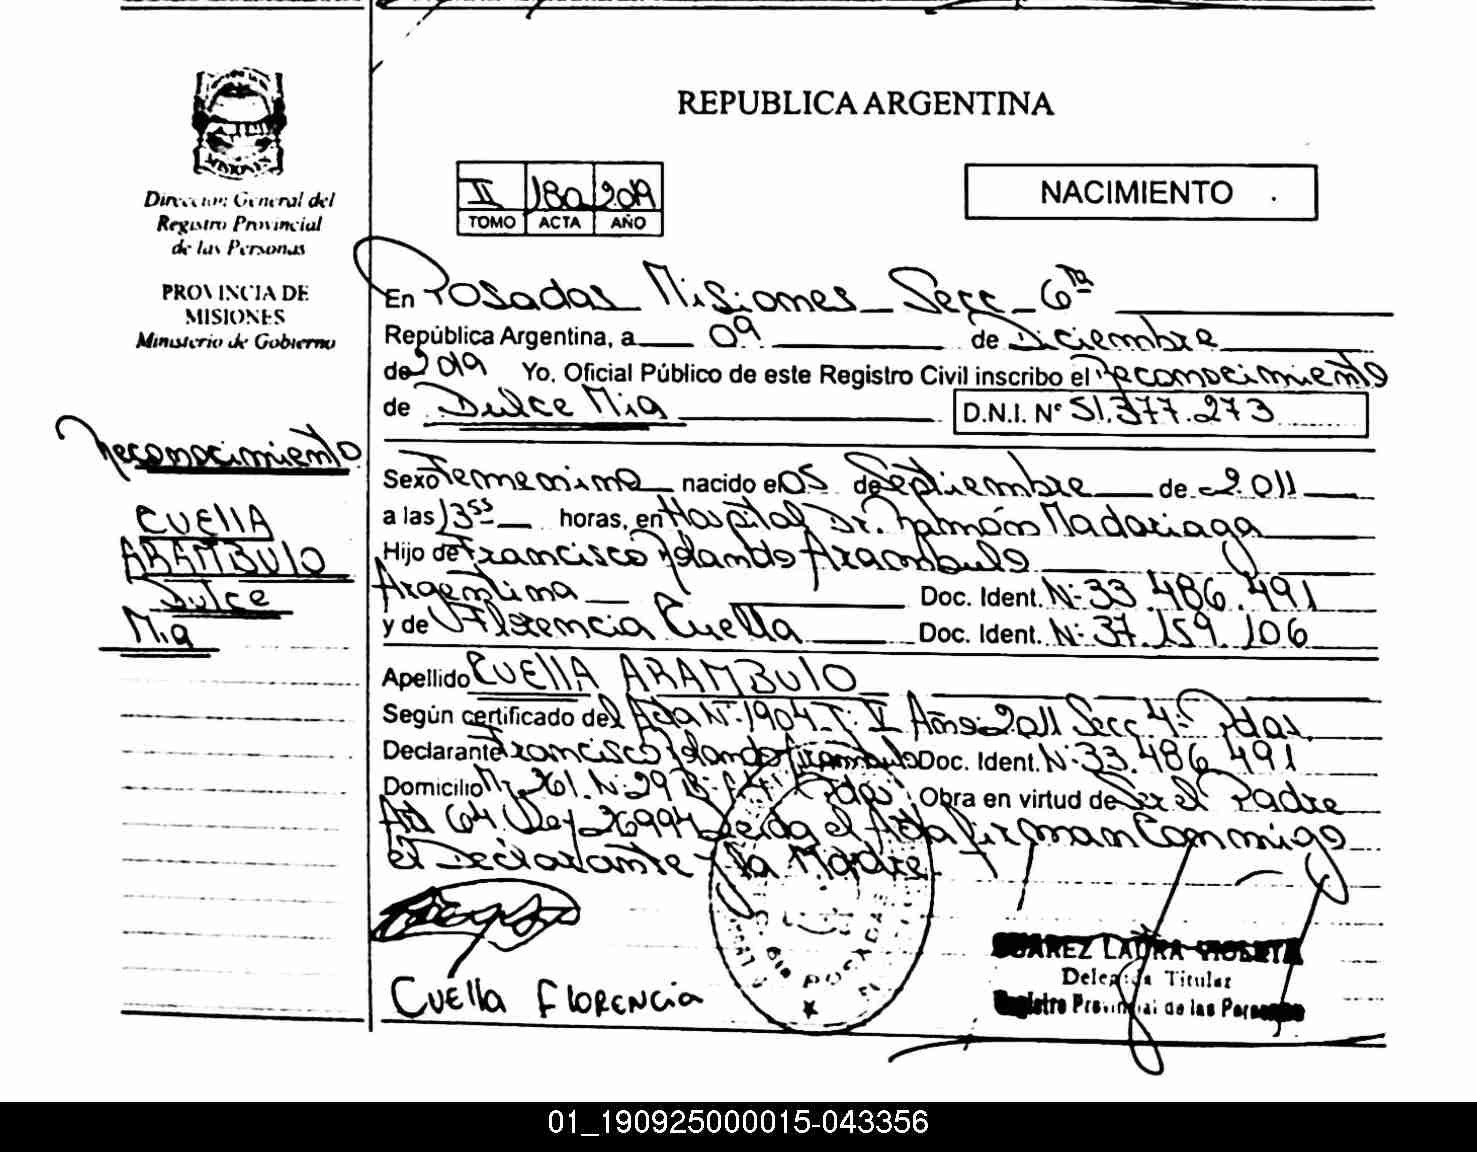 Direccion General del
Registro Provincial
de las Personas
PROVINCIA DE
MISIONES
Ministerio de Gobierno
Reconocimiento
CUEllA
ARAMBULO
Dulce
Mia
REPUBLICA ARGENTINA
II 180 2019
TOMO ACTA AÑO
NACIMIENTO
En Posadas Misiones - Secc - 6ta
República Argentina, a 09 de Diciembre
de 2019 Yo, Oficial Público de este Registro Civil inscribo el Reconocimiento
de Dulce Mia D.N.I. N° 51.377.273
Sexo Femenino nacido el 05 de Septiembre de 2.011
a las 13 55 horas, en Hospital Dr. Ramón Madariaga
Hijo de Francisco Rolando Arambulo
Argentina Doc. Ident. N: 33.486.491
y de Florencia Cuella Doc. Ident. N: 37.159.106
Apellido CUEllA ARAMBULO
Según certificado del Acta N: 1904 T: V Año: 2011 Secc 4- Pdas.
Declarante Francisco Rolando Arambulo Doc. Ident. N: 33.486.491
Domicilio Mz 261. N: 29 Pdas Obra en virtud de Ser el Padre
Art 64 Ley 26994 Leida el Acta firman Conmigo
el Declarante La Madre.
CUElla FlORENCiA
POSADAS
SUAREZ LAURA VIOLETA
Delegada Titular
Registro Provincial de las Personas
01_190925000015-043356